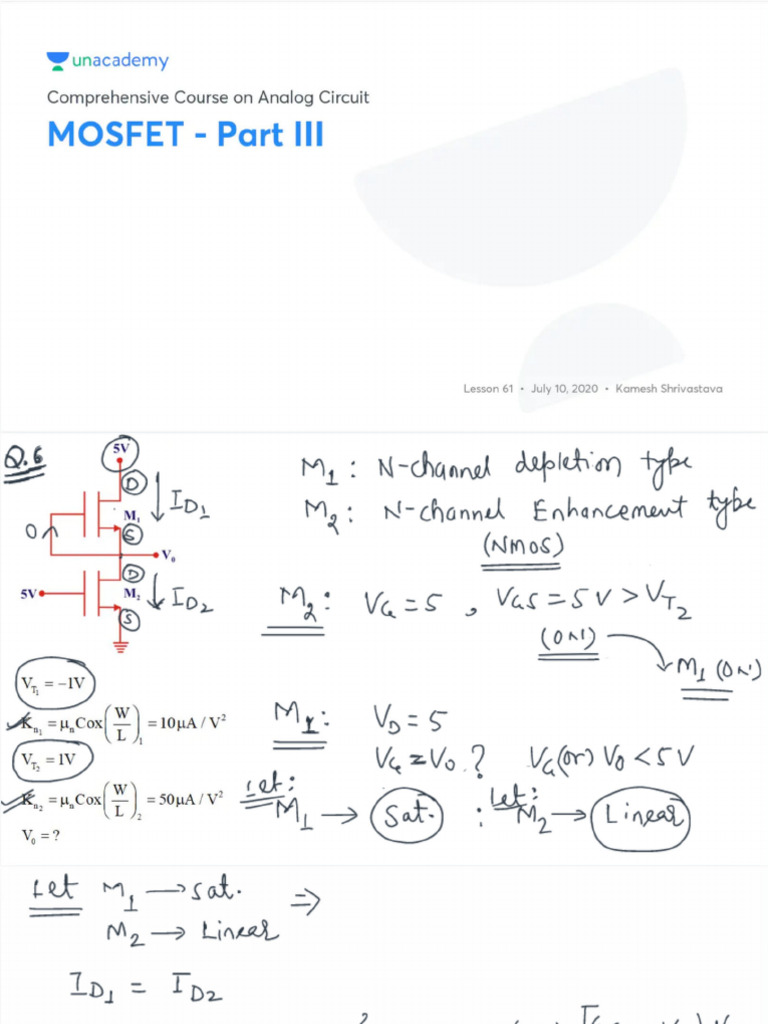 unacademy
Comprehensive Course on Analog Circuit
MOSFET - Part III
Lesson 61 • July 10, 2020 • Kamesh Shrivastava
Q.6
5V
D
I_D1
M₁
S
0
V₀
D
5V
M₂
I_D2
S
V_T₁ = −1V
K_n₁ = μₙCox(W/L)₁ = 10μA / V²
V_T₂ = 1V
K_n₂ = μₙCox(W/L)₂ = 50μA / V²
V₀ = ?
M₁ : N-channel depletion type
M₂ : N-channel Enhancement type
(NMOS)
M₂ : V_G = 5 , V_GS = 5V > V_T₂
(ON)
M₁ (ON)
M₁ : V_D = 5
V_G = V₀ ? V_G (or) V₀ < 5V
Let: M₁ → Sat. : Let: M₂ → Linear
Let M₁ → Sat. ⇒
M₂ → Linear
I_D1 = I_D2